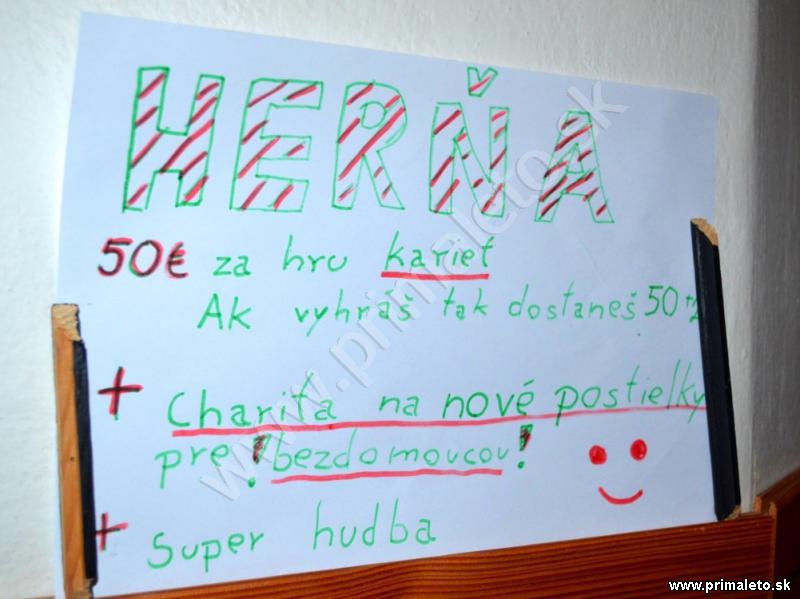 HERŇA
50€ za hru kariet
Ak vyhráš tak dostaneš 50
+ Charita na nové postielky
pre !bezdomovcov!
+ Super hudba
www.primaleto.sk
www.primaleto.sk